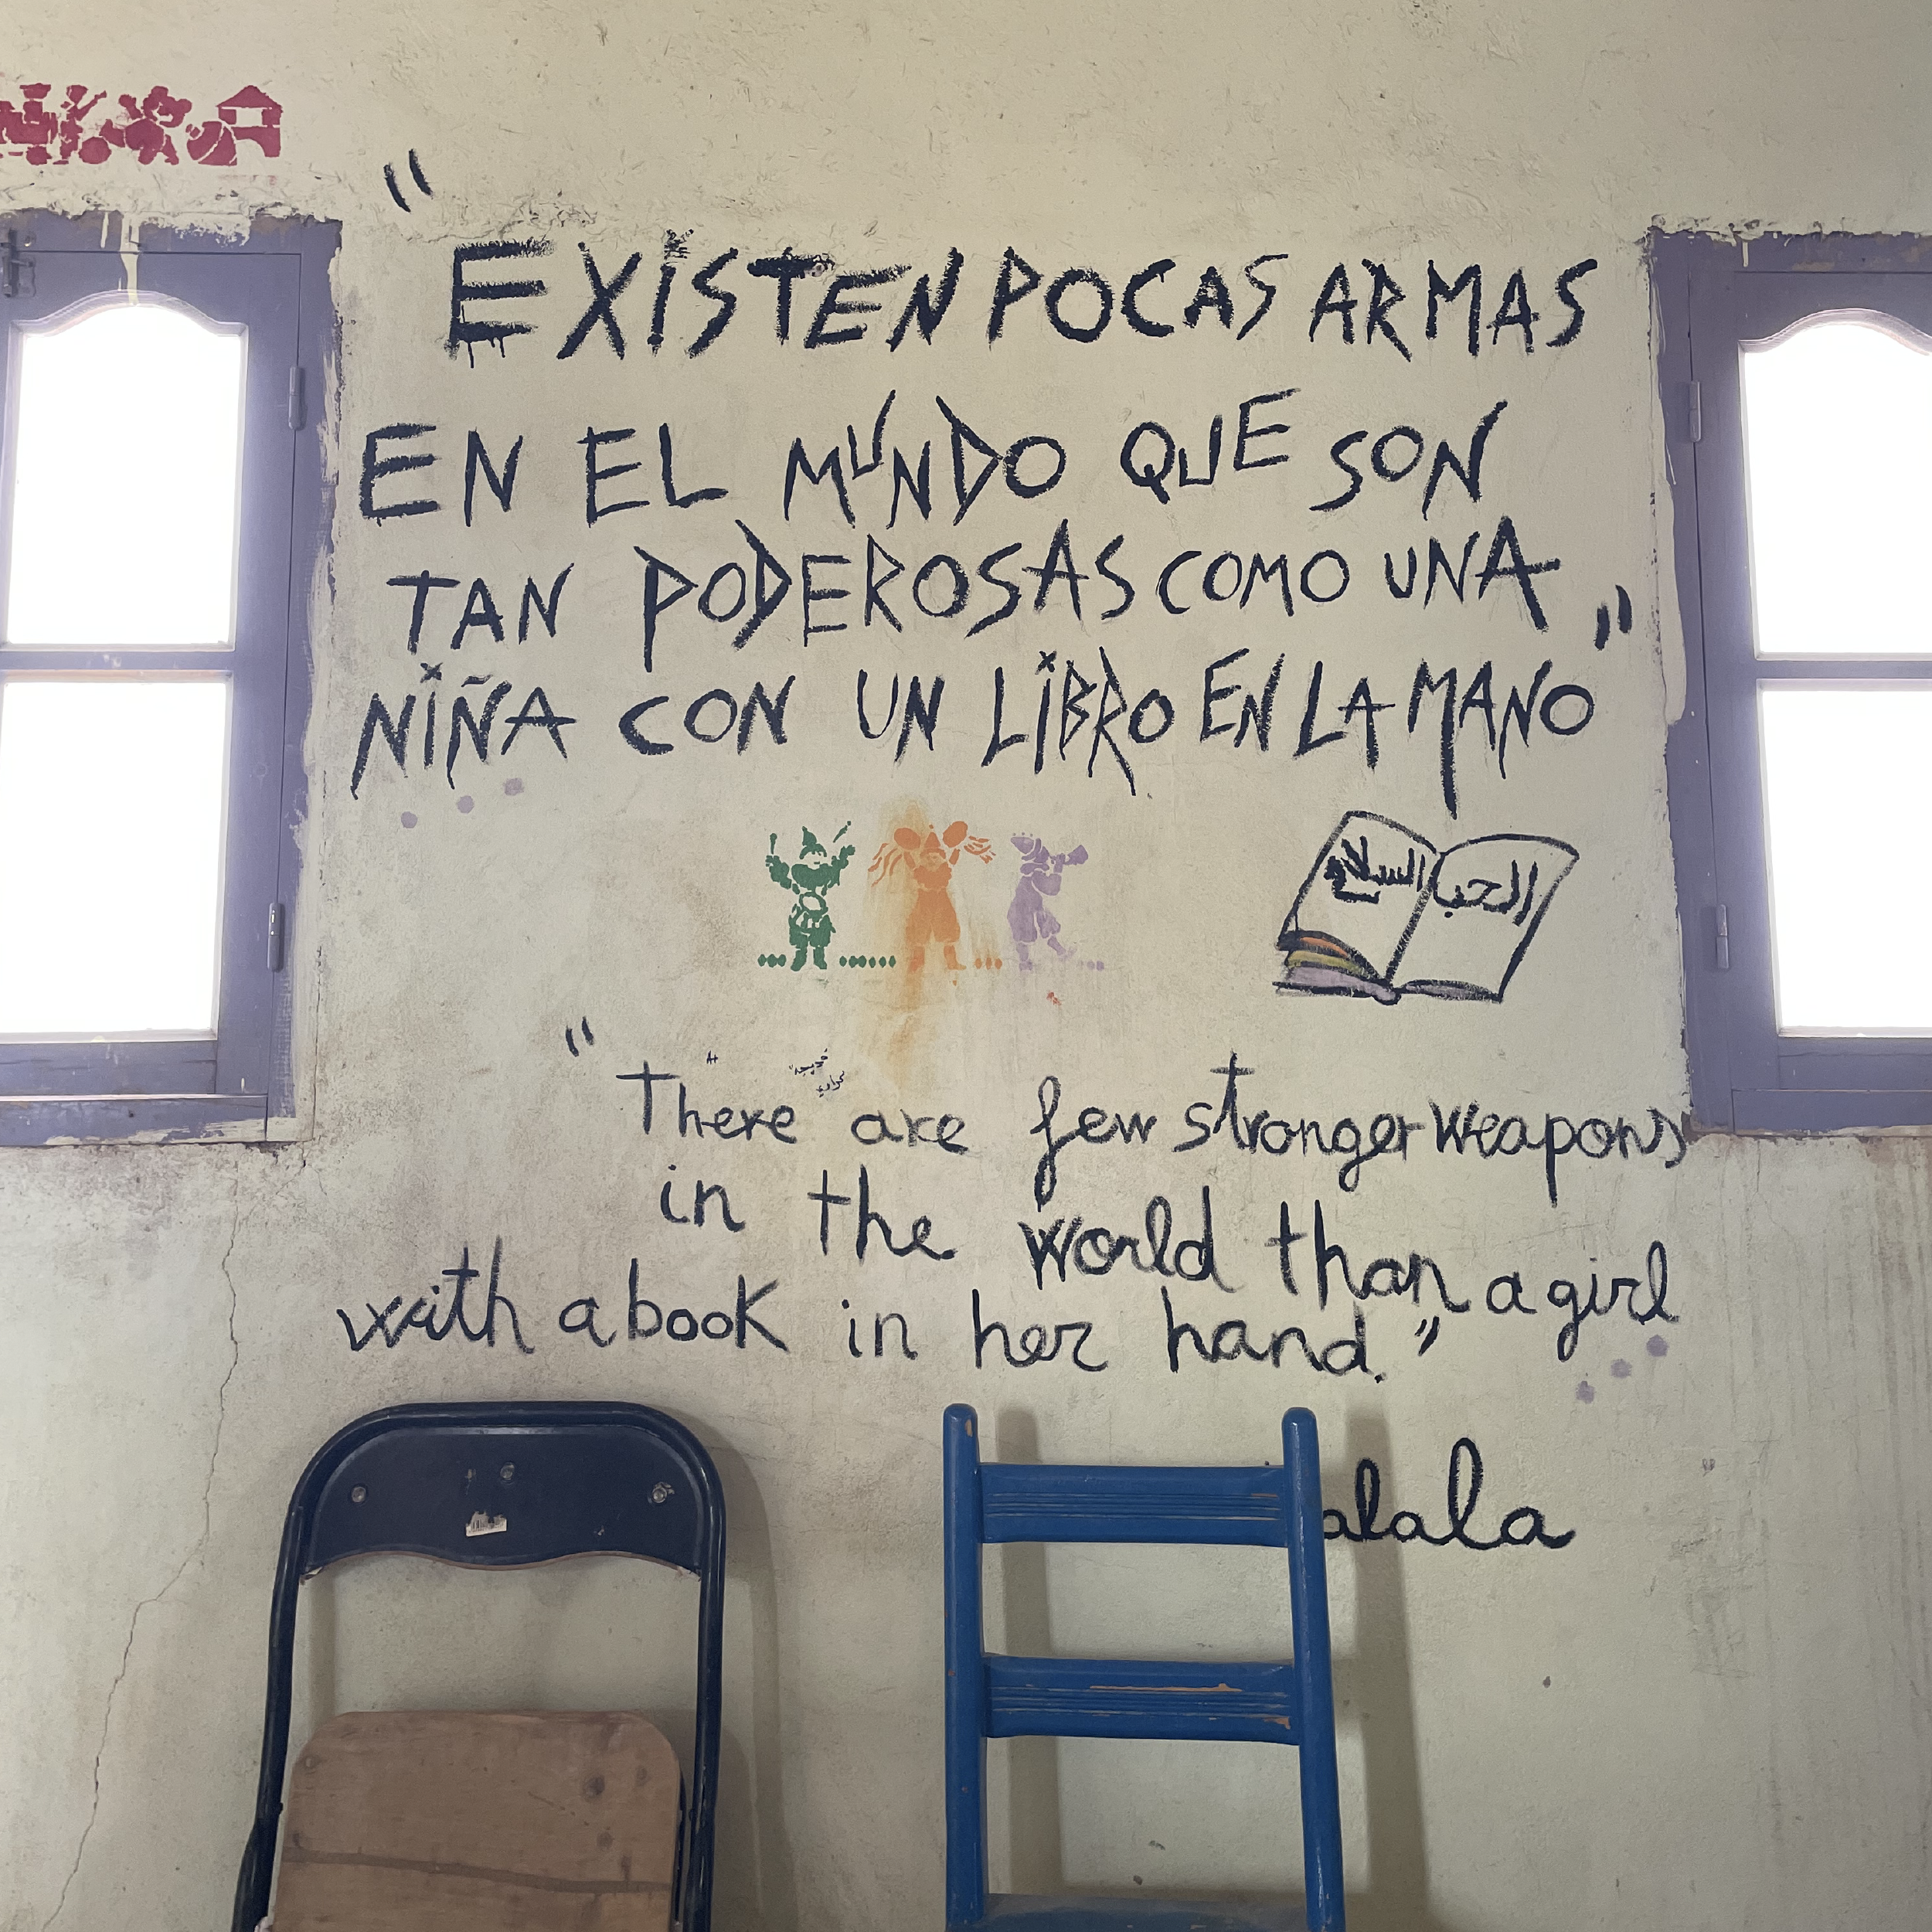 "
EXISTEN POCAS ARMAS
EN EL MUNDO QUE SON
TAN PODEROSAS COMO UNA
NIÑA CON UN LIBRO EN LA MANO"
السلام الحب
"There are few stronger weapons
in the world than a girl
with a book in her hand."
alala